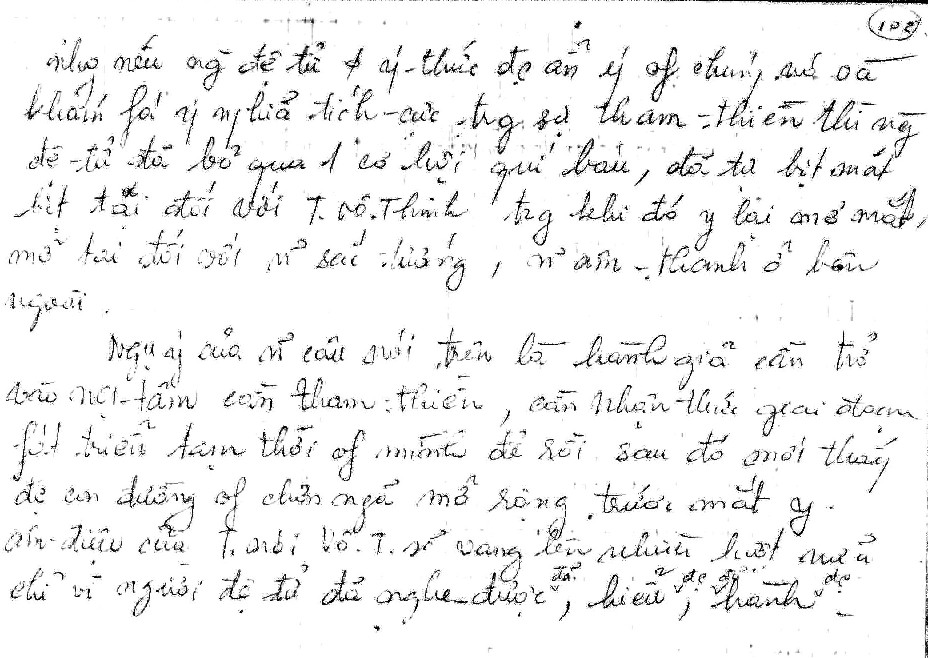 102
nhg nếu ng đệ tử ý-thức đc ẩn ý of chúng và
khám fá ý nghĩa tích-cực trg sự tham-thiền thì ng
đệ-tử đã bỏ qua 1 cơ hội quí báu, đã tự bịt mắt
bịt tai đối với T. Vô.Thinh trg khi đó y lại mở mắt,
mở tai đối với sắc-tướng, âm-thanh ở bên
ngoài.
Ngụ ý của câu nói trên là hành giả cần trở
vào nội-tâm cần tham-thiền, cần nhận-thức giai đoạn
fát triển tạm thời of mình để rồi sau đó mới thấy
đc con đường of chơn ngã mở rộng trước mắt y.
âm-điệu của T. nói Vô.T. vang lên nhiều lượt nữa
chỉ vì người đệ tử đã nghe được, đã hiểu đc, đã hành đc